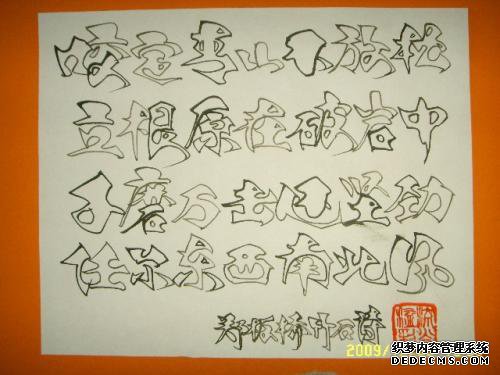 咬定青山不放松
立根原在破岩中
千磨万击还坚劲
任尔东西南北风
郑板桥竹石诗
2009/
织梦内容管理系统
DEDECMS.COM